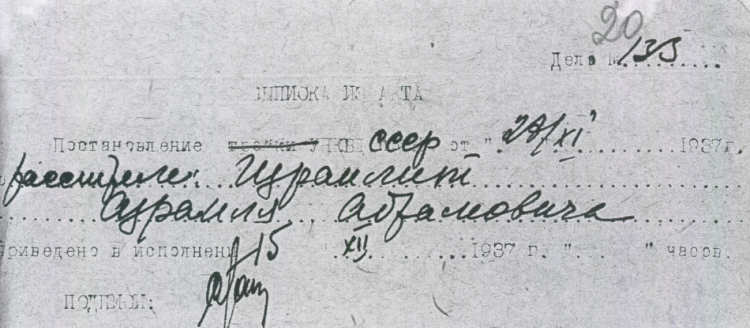 20
Дело № 133
ВЫПИСКА ИЗ АКТА
Постановление тройки УНКВД СССР от "29/XI 1937г.
о расстреле: Израилит
Израиля Абрамовича
Приведено в исполнени 15 XII 1937 г. " " часов.
ПОДПИСИ: